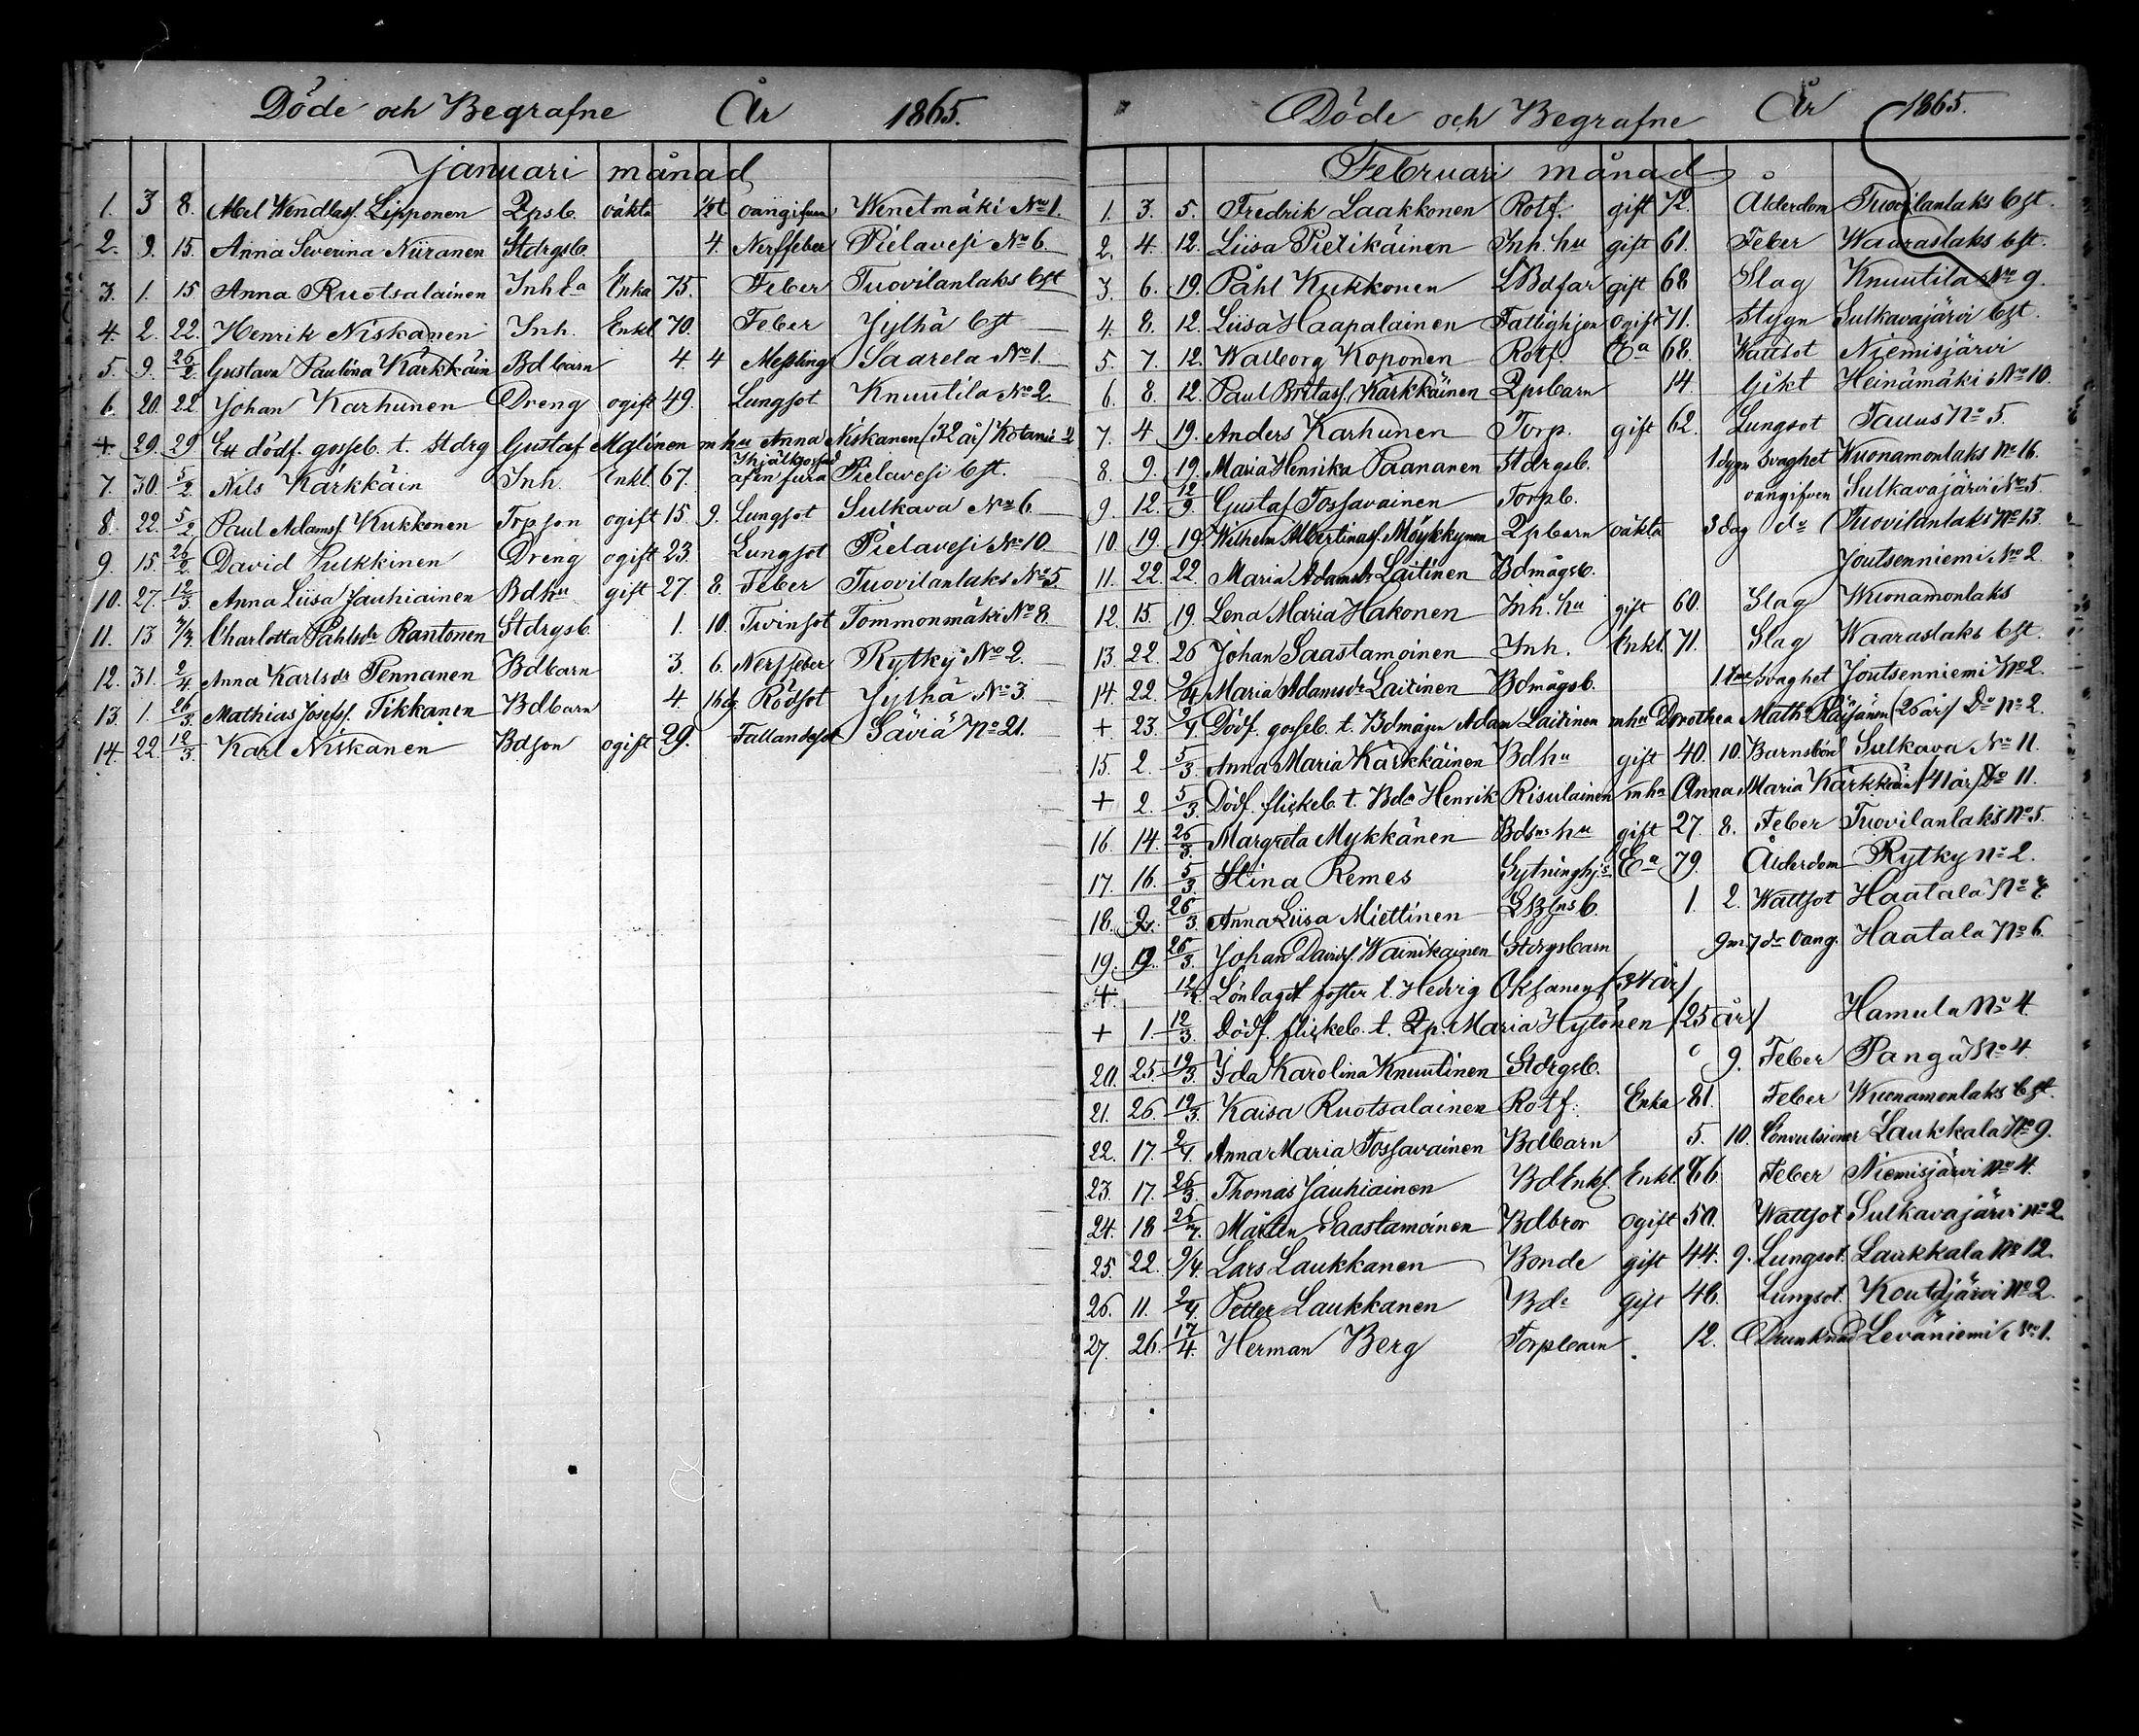 Döde och Begrafne År 1865.
Januari månad
1. 3 8. Abel Wendlasf. Lipponen Qpsb. oäkta 1/2t oangifven Wenetmäki No 1.
2. 9. 15. Anna Severina Niiranen Stdrgsb. 4. Nerffeber Pielavesi No 6.
3. 1. 15 Anna Ruotsalainen Inh Enka 75. Feber Tuovilanlaks bst
4. 2. 22. Henrik Niskanen Inh. Enkl. 70. Feber Jylhä bst
5. 9. 26/2. Gustava Paulina Kärkkäin Bdbarn 4 4 Messling Saarela No 1.
6. 20. 22 Johan Karhunen Dreng ogift 49. Lungsot Knuutila No 2.
+ 29. 29 Ett dödf. gosseb. t. Stdrg Gustaf Malinen m hu Anna Niskanen (32 år) Kotanie 2
7. 30. 5/2. Nils Kärkkäin Inh. Enkl. 67. Ihjälkrossad af en fura Pielavesi bst.
8. 22. 5/2 Paul Adamsf Kukkonen Torpson ogift 15. 9. Lungsot Sulkava No 6.
9. 15. 26/2. David Pulkkinen Dreng ogift 23. Lungsot Pielavesi No 10.
10. 27. 12/3. Anna Liisa Jauhiainen Bdhu gift 27. 8. Feber Tuovilanlaks No 5.
11. 13 Charlotta Påhlsdr Rantonen Stdrgsb. 1. 10. Tvinsot Tommonmäki No 8.
12. 31. 2/4. Anna Karlsdr Pennanen Bdbarn 3. 6. Nerffeber Rytky No 2.
13. 1. 26/3. Mathias Josefsf. Tikkanen Bdbarn 4. 16 dg. Rödsot Jylhä No 3.
14. 22. 12/3. Karl Niskanen Bdson ogift 29. Fallandesot Säviä No 21.
Döde och Begrafne År 1865.
Februari månad
1. 3. 5. Fredrik Laakkonen Rotf. gift 72. Ålderdom Tuovilanlaks bst.
2. 4. 12. Liisa Pietikäinen Inh. hu gift 61. Feber Waaraslaks bst.
3. 6. 19. Påhl Kukkonen LBdfar gift 68 Slag Knuutila No 9.
4. 8. 12. Liisa Haapalainen Fattighjon Ogift 71. Stygn Sulkavajärvi bst.
5. 7. 12. Walborg Koponen Rotf. Ea 68. Wattsot Niemisjärvi
6. 8. 12. Paul Britasf. Kärkkäinen Qpsbarn 14. Gikt Heinämäki No 10.
7. 4 19. Anders Karhunen Torp. gift 62. Lungsot Tauus No 5.
8. 9. 19. Maria Henrika Paananen Stdrgsb. 1 dygn Svaghet Wuonamonlaks No 16.
9. 12. 12/9. Gustaf Tossavainen Torpb. oangifven Sulkavajärvi No 5.
10. 19. 19. Wilhelm Albertinasf. Möykkynen Qpbarn oäkta 3 dag do Tuovilanlaks No 13.
11. 22. 22. Maria Adamsdr Laitinen Bdmågsb. Joutsenniemi No 2
12. 15. 19. Lena Maria Hakonen Inh. hu gift 60. Slag Wuonamonlaks
13. 22. 26 Johan Saastamoinen Inh. Enkl. 71. Slag Waaraslaks bst.
14. 22. 2/4 Maria Adamsdr Laitinen Bdmågsb. Svaghet Joutsenniemi No 2.
+ 23. 2/4. Dödf. gosseb. t. Bdmågen Adam Laitinen m hu Dorothea Mathr Räisänen (26 år) Do No 2.
15. 2. 5/3. Anna Maria Kärkkäinen Bdhu gift 40. 10. Barnsbörd Sulkava No 11.
+ 2. 5/3. Dödf. flickeb. t. Bdn Henrik Risulainen m hu Anna Maria Kärkkäin (41 år) Do 11.
16. 14. 26/3. Margreta Mykkänen Bdsns hu gift 27. 8. Feber Tuovilanlaks No 5.
17. 16. 5/3. Stina Remes Sytninghj. Ea 79. Ålderdom Rytky No 2.
18. 2. 26/3. Anna Liisa Miettinen 1. 2. Wattsot Haatala No
19. 19. 26/3. Johan Davidsf. Wainikainen Stdrgsbarn 9 m. 7 dr Oang. Haatala No 6.
+ Lönlagdt foster t. Hedvig Oksanen (34 år)
+ 1. 12/3. Dödf. flickeb. t. Qp. Maria Hytönen (25 år) Hamula No 4.
20. 25. 19/3. Ida Karolina Knuutinen Stdrgsb. 9. Feber Panga No 4.
21. 26. 19/3. Kaisa Ruotsalainen Rotf: Enka 81. Feber Wuonamonlaks bst.
22. 17. 2/4. Anna Maria Tossavainen Bdbarn 5. 10. Convulsioner Laukkala No 9.
23. 17. 26/3. Thomas Jauhiainen BdEnkl. Enkl. 66. Feber Niemisjärvi No 4.
24. 18 Mårten Saastamoinen Bdbror Ogift 50. Wattsot Sulkavajärvi No 2.
25. 22. 9/4. Lars Laukkanen Bonde gift 44. 9. Lungsot. Laukkala No 12.
26. 11. 2/4. Petter Laukkanen Bde gift 46. Lungsot. Koutajärvi No 2.
27. 26. 17/4. Herman Berg Torpbarn. 12. Drunknad Leväniemi No 1.